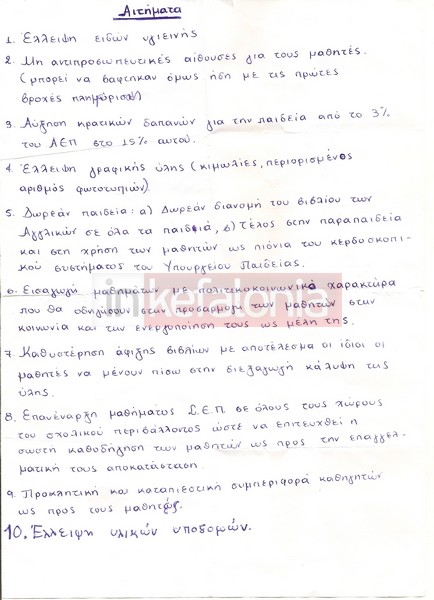 Αιτήματα
1. Έλλειψη ειδών υγιεινής
2. Μη αντιπροσωπευτικές αίθουσες για τους μαθητές.
(μπορεί να βάφτηκαν όμως ήδη με τις πρώτες
βροχές πλημμύρισαν)
3. Αύξηση κρατικών δαπανών για την παιδεία από το 3%
του ΑΕΠ στο 15% αυτού.
4. Έλλειψη γραφικής ύλης (κιμωλίες, περιορισμένος
αριθμός φωτοτυπιών)
5. Δωρεάν παιδεία: α) Δωρεάν διανομή του βιβλίου των
Αγγλικών σε όλα τα παιδιά, β) Τέλος στην παραπαιδεία
και στη χρήση των μαθητών ως πιόνια του κερδοσκοπι-
κού συστήματος του Υπουργείου Παιδείας.
6. Εισαγωγή μαθημάτων με πολιτικοκοινωνικό χαρακτήρα
που θα οδηγήσουν στην προσαρμογή των μαθητών στην
κοινωνία και την ενεργοποίηση τους ως μέλη της.
inkefalonia
7. Καθυστέρηση άφιξης βιβλίων με αποτέλεσμα οι ίδιοι οι
μαθητές να μένουν πίσω στην διεξαγωγή κάλυψης της
ύλης.
8. Επανέναρξη μαθήματος Σ.Ε.Π σε όλους τους χώρους
του σχολικού περιβάλλοντος ώστε να επιτευχθεί η
σωστή καθοδήγηση των μαθητών ως προς την επαγγελ-
ματική τους αποκατάσταση.
9. Προκλητική και καταπιεστική συμπεριφορά καθηγητών
ως προς τους μαθητές.
10. Έλλειψη υλικών υποδομών.